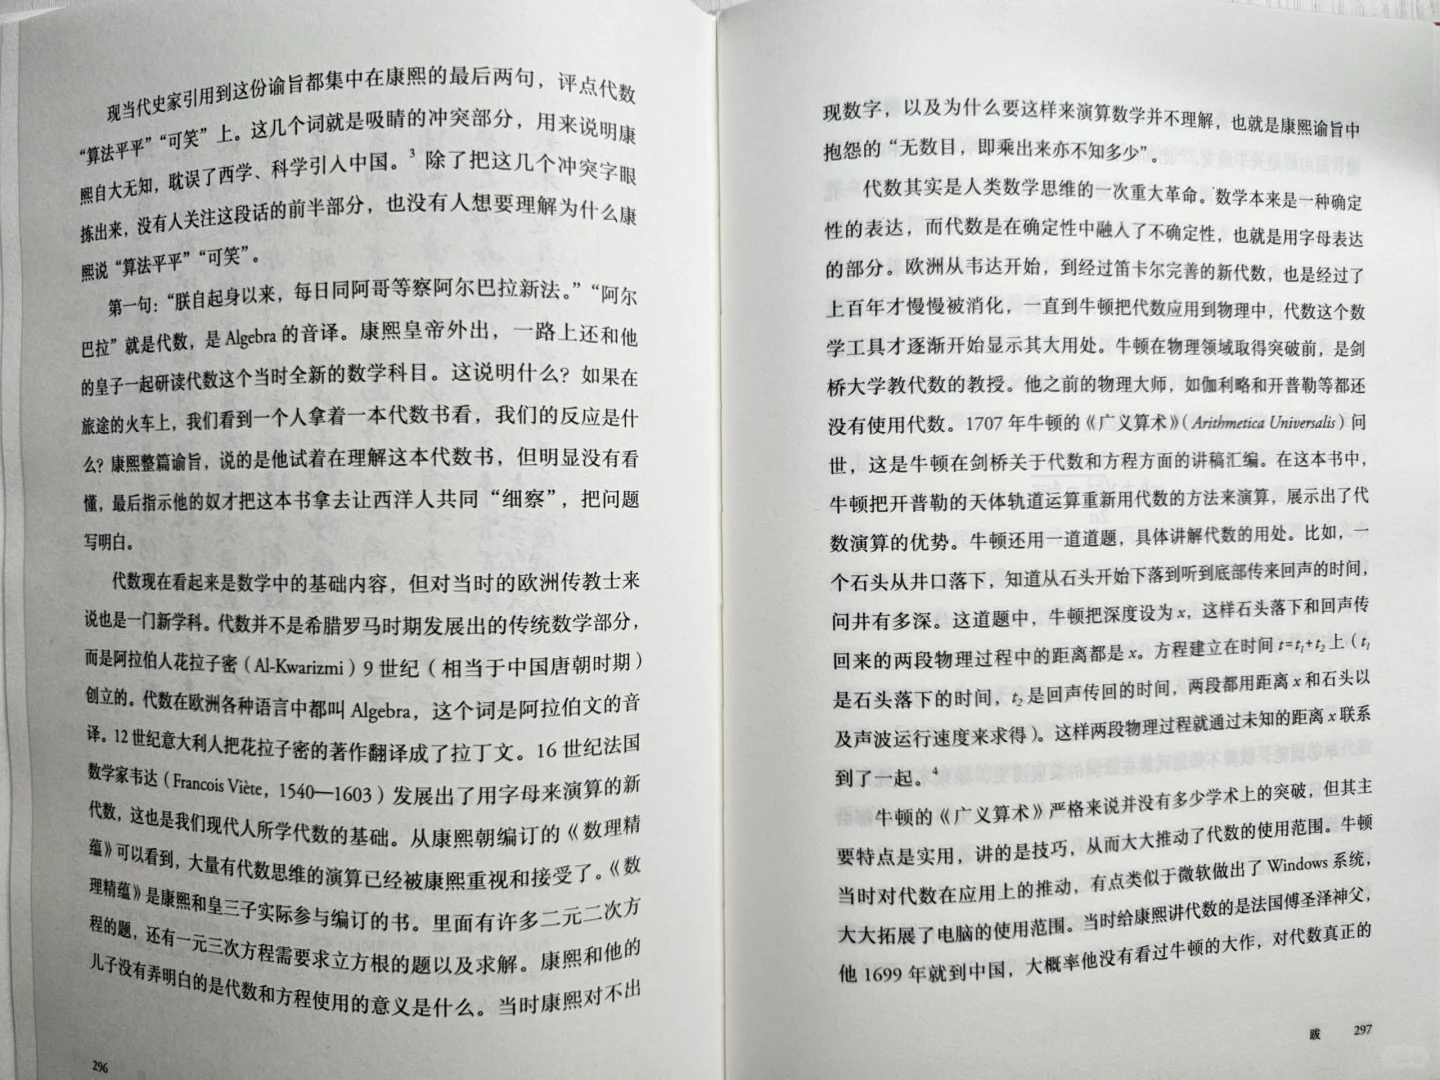 现当代史家引用到这份谕旨都集中在康熙的最后两句，评点代数
“算法平平”“可笑”上。这几个词就是吸睛的冲突部分，用来说明康
熙自大无知，耽误了西学、科学引入中国。3 除了把这几个冲突字眼
拣出来，没有人关注这段话的前半部分，也没有人想要理解为什么康
熙说“算法平平”“可笑”。
第一句：“朕自起身以来，每日同阿哥等察阿尔巴拉新法。”“阿尔
巴拉”就是代数，是 Algebra 的音译。康熙皇帝外出，一路上还和他
的皇子一起研读代数这个当时全新的数学科目。这说明什么？如果在
旅途的火车上，我们看到一个人拿着一本代数书看，我们的反应是什
么？康熙整篇谕旨，说的是他试着在理解这本代数书，但明显没有看
懂，最后指示他的奴才把这本书拿去让西洋人共同“细察”，把问题
写明白。
代数现在看起来是数学中的基础内容，但对当时的欧洲传教士来
说也是一门新学科。代数并不是希腊罗马时期发展出的传统数学部分，
而是阿拉伯人花拉子密（Al-Kwarizmi）9 世纪（相当于中国唐朝时期）
创立的。代数在欧洲各种语言中都叫 Algebra，这个词是阿拉伯文的音
译。12 世纪意大利人把花拉子密的著作翻译成了拉丁文。16 世纪法国
数学家韦达（Francois Viète，1540—1603）发展出了用字母来演算的新
代数，这也是我们现代人所学代数的基础。从康熙朝编订的《数理精
蕴》可以看到，大量有代数思维的演算已经被康熙重视和接受了。《数
理精蕴》是康熙和皇三子实际参与编订的书。里面有许多二元二次方
程的题，还有一元三次方程需要求立方根的题以及求解。康熙和他的
儿子没有弄明白的是代数和方程使用的意义是什么。当时康熙对不出
296
现数字，以及为什么要这样来演算数学并不理解，也就是康熙谕旨中
抱怨的“无数目，即乘出来亦不知多少”。
代数其实是人类数学思维的一次重大革命。数学本来是一种确定
性的表达，而代数是在确定性中融入了不确定性，也就是用字母表达
的部分。欧洲从韦达开始，到经过笛卡尔完善的新代数，也是经过了
上百年才慢慢被消化，一直到牛顿把代数应用到物理中，代数这个数
学工具才逐渐开始显示其大用处。牛顿在物理领域取得突破前，是剑
桥大学教代数的教授。他之前的物理大师，如伽利略和开普勒等都还
没有使用代数。1707 年牛顿的《广义算术》（Arithmetica Universalis）问
世，这是牛顿在剑桥关于代数和方程方面的讲稿汇编。在这本书中，
牛顿把开普勒的天体轨道运算重新用代数的方法来演算，展示出了代
数演算的优势。牛顿还用一道道题，具体讲解代数的用处。比如，一
个石头从井口落下，知道从石头开始下落到听到底部传来回声的时间，
问井有多深。这道题中，牛顿把深度设为 x，这样石头落下和回声传
回来的两段物理过程中的距离都是 x。方程建立在时间 t=t₁+t₂ 上（t₁
是石头落下的时间，t₂ 是回声传回的时间，两段都用距离 x 和石头以
及声波运行速度来求得）。这样两段物理过程就通过未知的距离 x 联系
到了一起。4
牛顿的《广义算术》严格来说并没有多少学术上的突破，但其主
要特点是实用，讲的是技巧，从而大大推动了代数的使用范围。牛顿
当时对代数在应用上的推动，有点类似于微软做出了 Windows 系统，
大大拓展了电脑的使用范围。当时给康熙讲代数的是法国傅圣泽神父，
他 1699 年就到中国，大概率他没有看过牛顿的大作，对代数真正的
跋 297